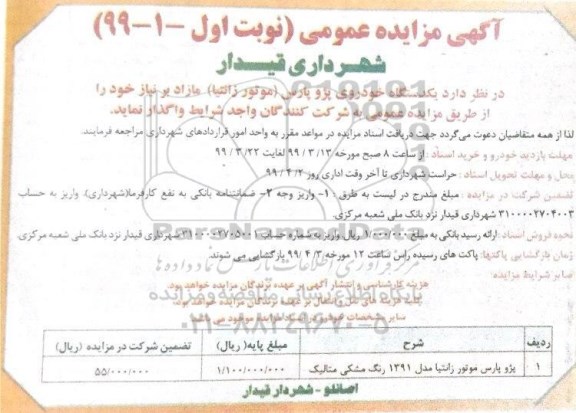 آگهی مزایده عمومی (نوبت اول -۱-۹۹)
شهرداری قیدار
در نظر دارد یکدستگاه خودروی پژو پارس (موتور زانتیا) مازاد بر نیاز خود را
از طریق مزایده عمومی به شرکت کنندگان واجد شرایط واگذار نماید.
لذا از همه متقاضیان دعوت می‌گردد جهت دریافت اسناد مزایده در مواعد مقرر به واحد امور قراردادهای شهرداری مراجعه فرمایند.
مهلت بازدید خودرو و خرید اسناد : از ساعت ۸ صبح مورخه ۹۹/۳/۱۳ لغایت ۹۹/۳/۲۲
محل و مهلت تحویل اسناد : حراست شهرداری تا آخر وقت اداری روز ۹۹/۴/۲
تضمین شرکت در مزایده : مبلغ مندرج در لیست به طرق : ۱- واریز وجه ۲- ضمانتنامه بانکی به نفع کارفرما(شهرداری)، واریز به حساب
۳۱۰۰۰۰۲۷۰۴۰۰۳ شهرداری قیدار نزد بانک ملی شعبه مرکزی.
نحوه فروش اسناد : ارائه رسید بانکی به مبلغ ریال واریزی به شماره حساب شهرداری قیدار نزد بانک ملی شعبه مرکزی.
زمان بازگشایی پاکتها: پاکت های رسیده راس ساعت ۱۲ مورخه ۹۹/۴/۳ بازگشایی می شوند
سایر شرایط مزایده:
هزینه کارشناسی و انتشار آگهی بر عهده برندگان مزایده خواهد بود.
بر عهده برندگان مزایده خواهد بود.
سایر مشخصات خودرو در اسناد مزایده موجود می باشد
ParsNamadData
مرکز فرآوری اطلاعات پارس نماد داده ها
پایگاه اطلاع رسانی مناقصه و مزایده
۰۲۱-۸۸۳۴۹۶۷۰-۵
ردیف شرح مبلغ پایه( ریال) تضمین شرکت در مزایده (ریال)
۱ پژو پارس موتور زانتیا مدل ۱۳۹۱ رنگ مشکی متالیک ۱/۱۰۰/۰۰۰/۰۰۰ ۵۵/۰۰۰/۰۰۰
اصانلو - شهردار قیدار